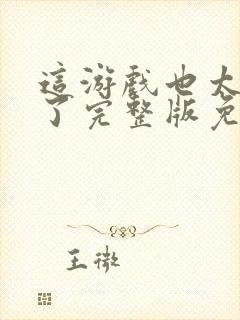 這游戲也太
了完整版免
王微